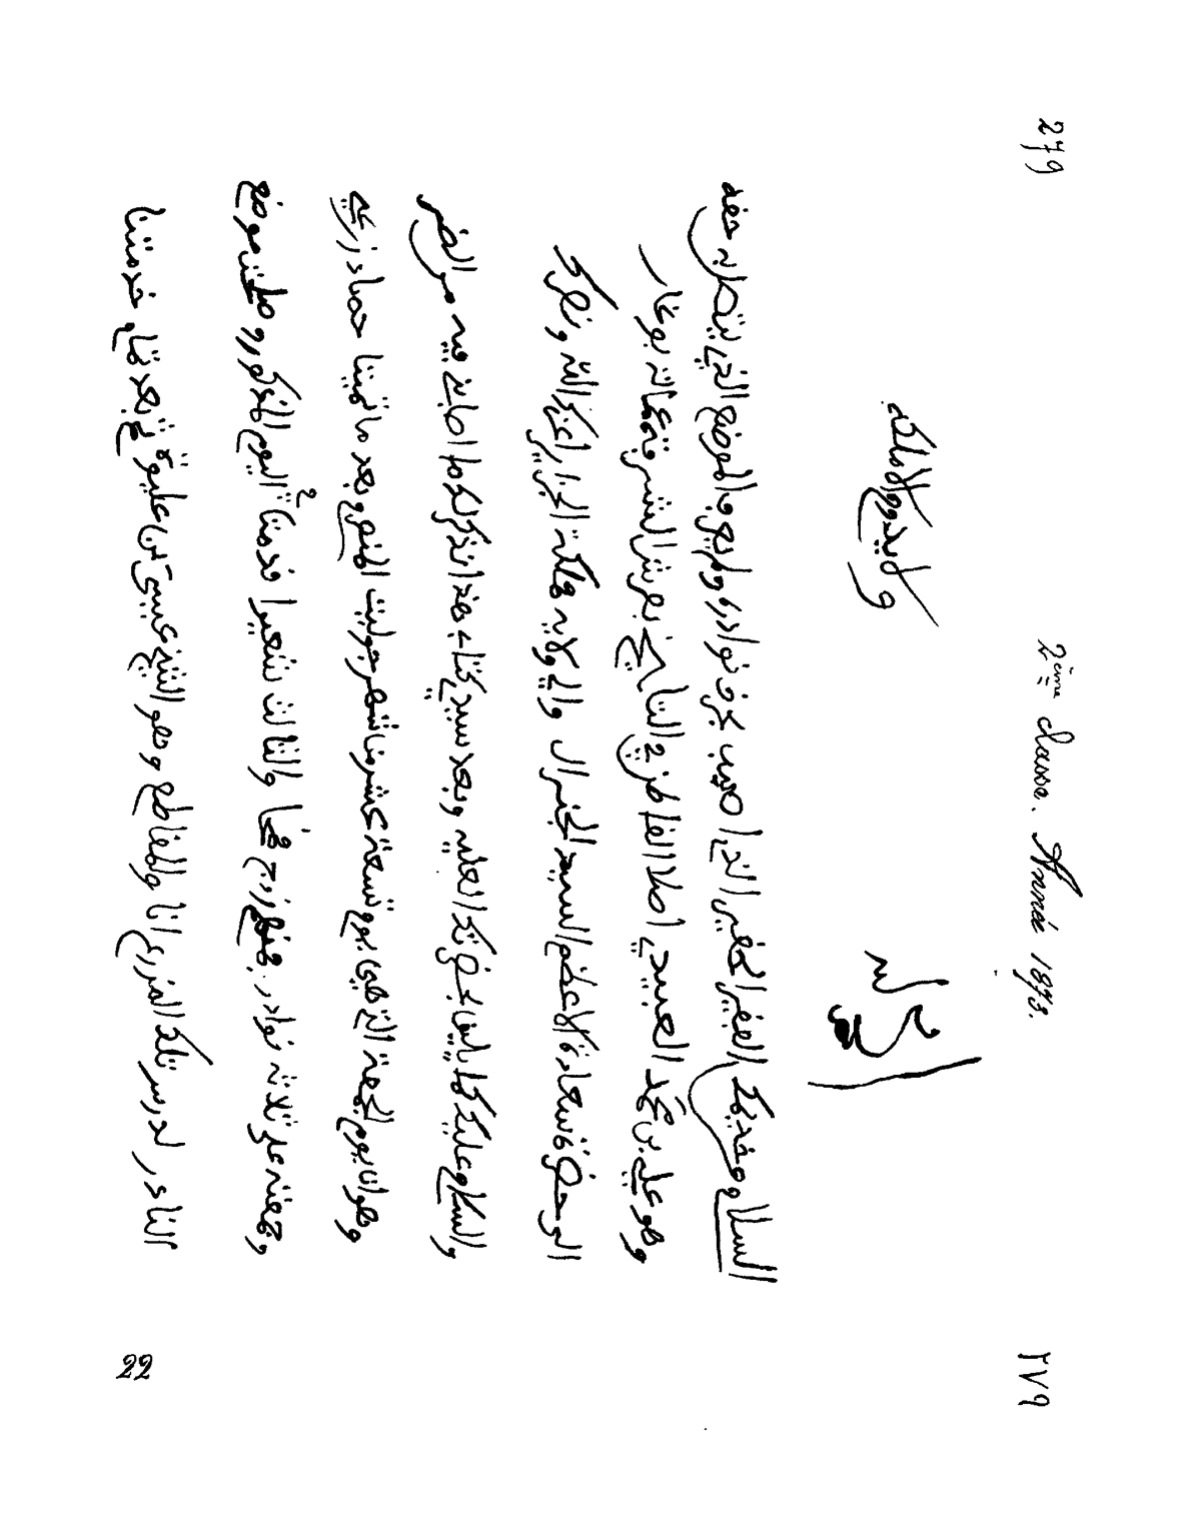 279
2ème classe. Année 1873.
٢٧٩
الحمد لله
ولا يدوم الا ملكه
السلام و خديمك الفقير الحقير الذي اصيب بحرق نوادره ولم يعرف الموضع الذي يتصل به حقه
وهو علي بن محمد العبيدي اصلا القاطن في التاريخ بعرش الشرفة عمالة بوغار
الى حضرة سعادة الاعظم السيد الجنرال والي ولاية مملكة الجزاير اعزك الله ونصرك
والسلام عليك كما يليق بحضرتك العلية وبعد سيدي كتاب هذا نذكر لكم ما اصابني فيه من الضر
وهو ان يوم الجمعة التي هي يوم تسعة عشر من شهر جوليت المنصرم وبعد ما تمينا حصاد زرعي
وجمعته على ثلاثة نوادر فمنهم زوج قمحا والثالث شعيرا قدمنا في اليوم المذكور وطلبت موضع
النادر لدرس تلك الزرع انا والمقاطع وهو الشيخ عيسى بن عليوة ثم بعد تمام خدمتنا
22